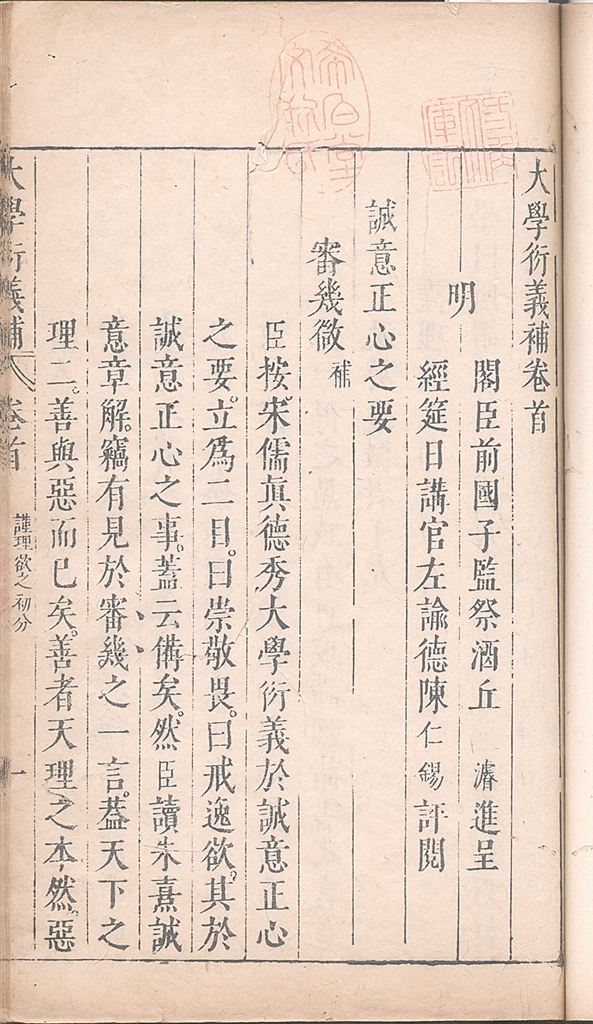 大學衍義補卷首
明
閣臣前國子監祭酒丘濬進呈
經筵日講官左諭德陳仁錫評閱
誠意正心之要
審幾微補
臣按宋儒眞德秀大學衍義於誠意正心
之要。立爲二目。曰崇敬畏。曰戒逸欲。其於
誠意正心之事。蓋云備矣。然臣讀朱熹誠
意章解。竊有見於審幾之一言。葢天下之
理二。善與惡而已矣。善者天理之本然。惡
大學衍義補 卷首 謹理欲之初分 一